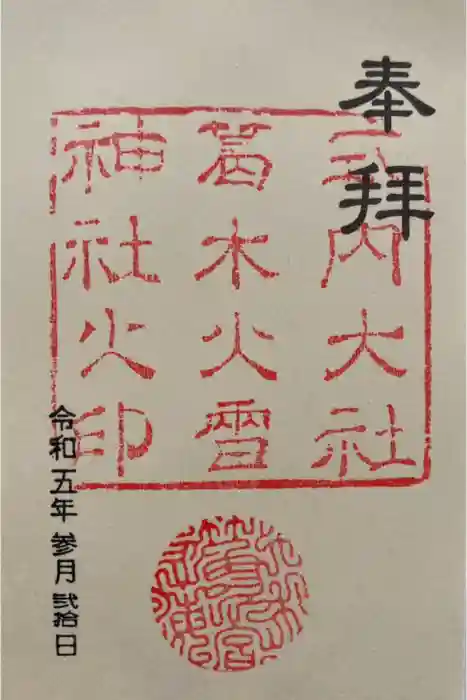 奉拝
式内大社
葛木火雷
神社之印
令和五年参月弐拾日